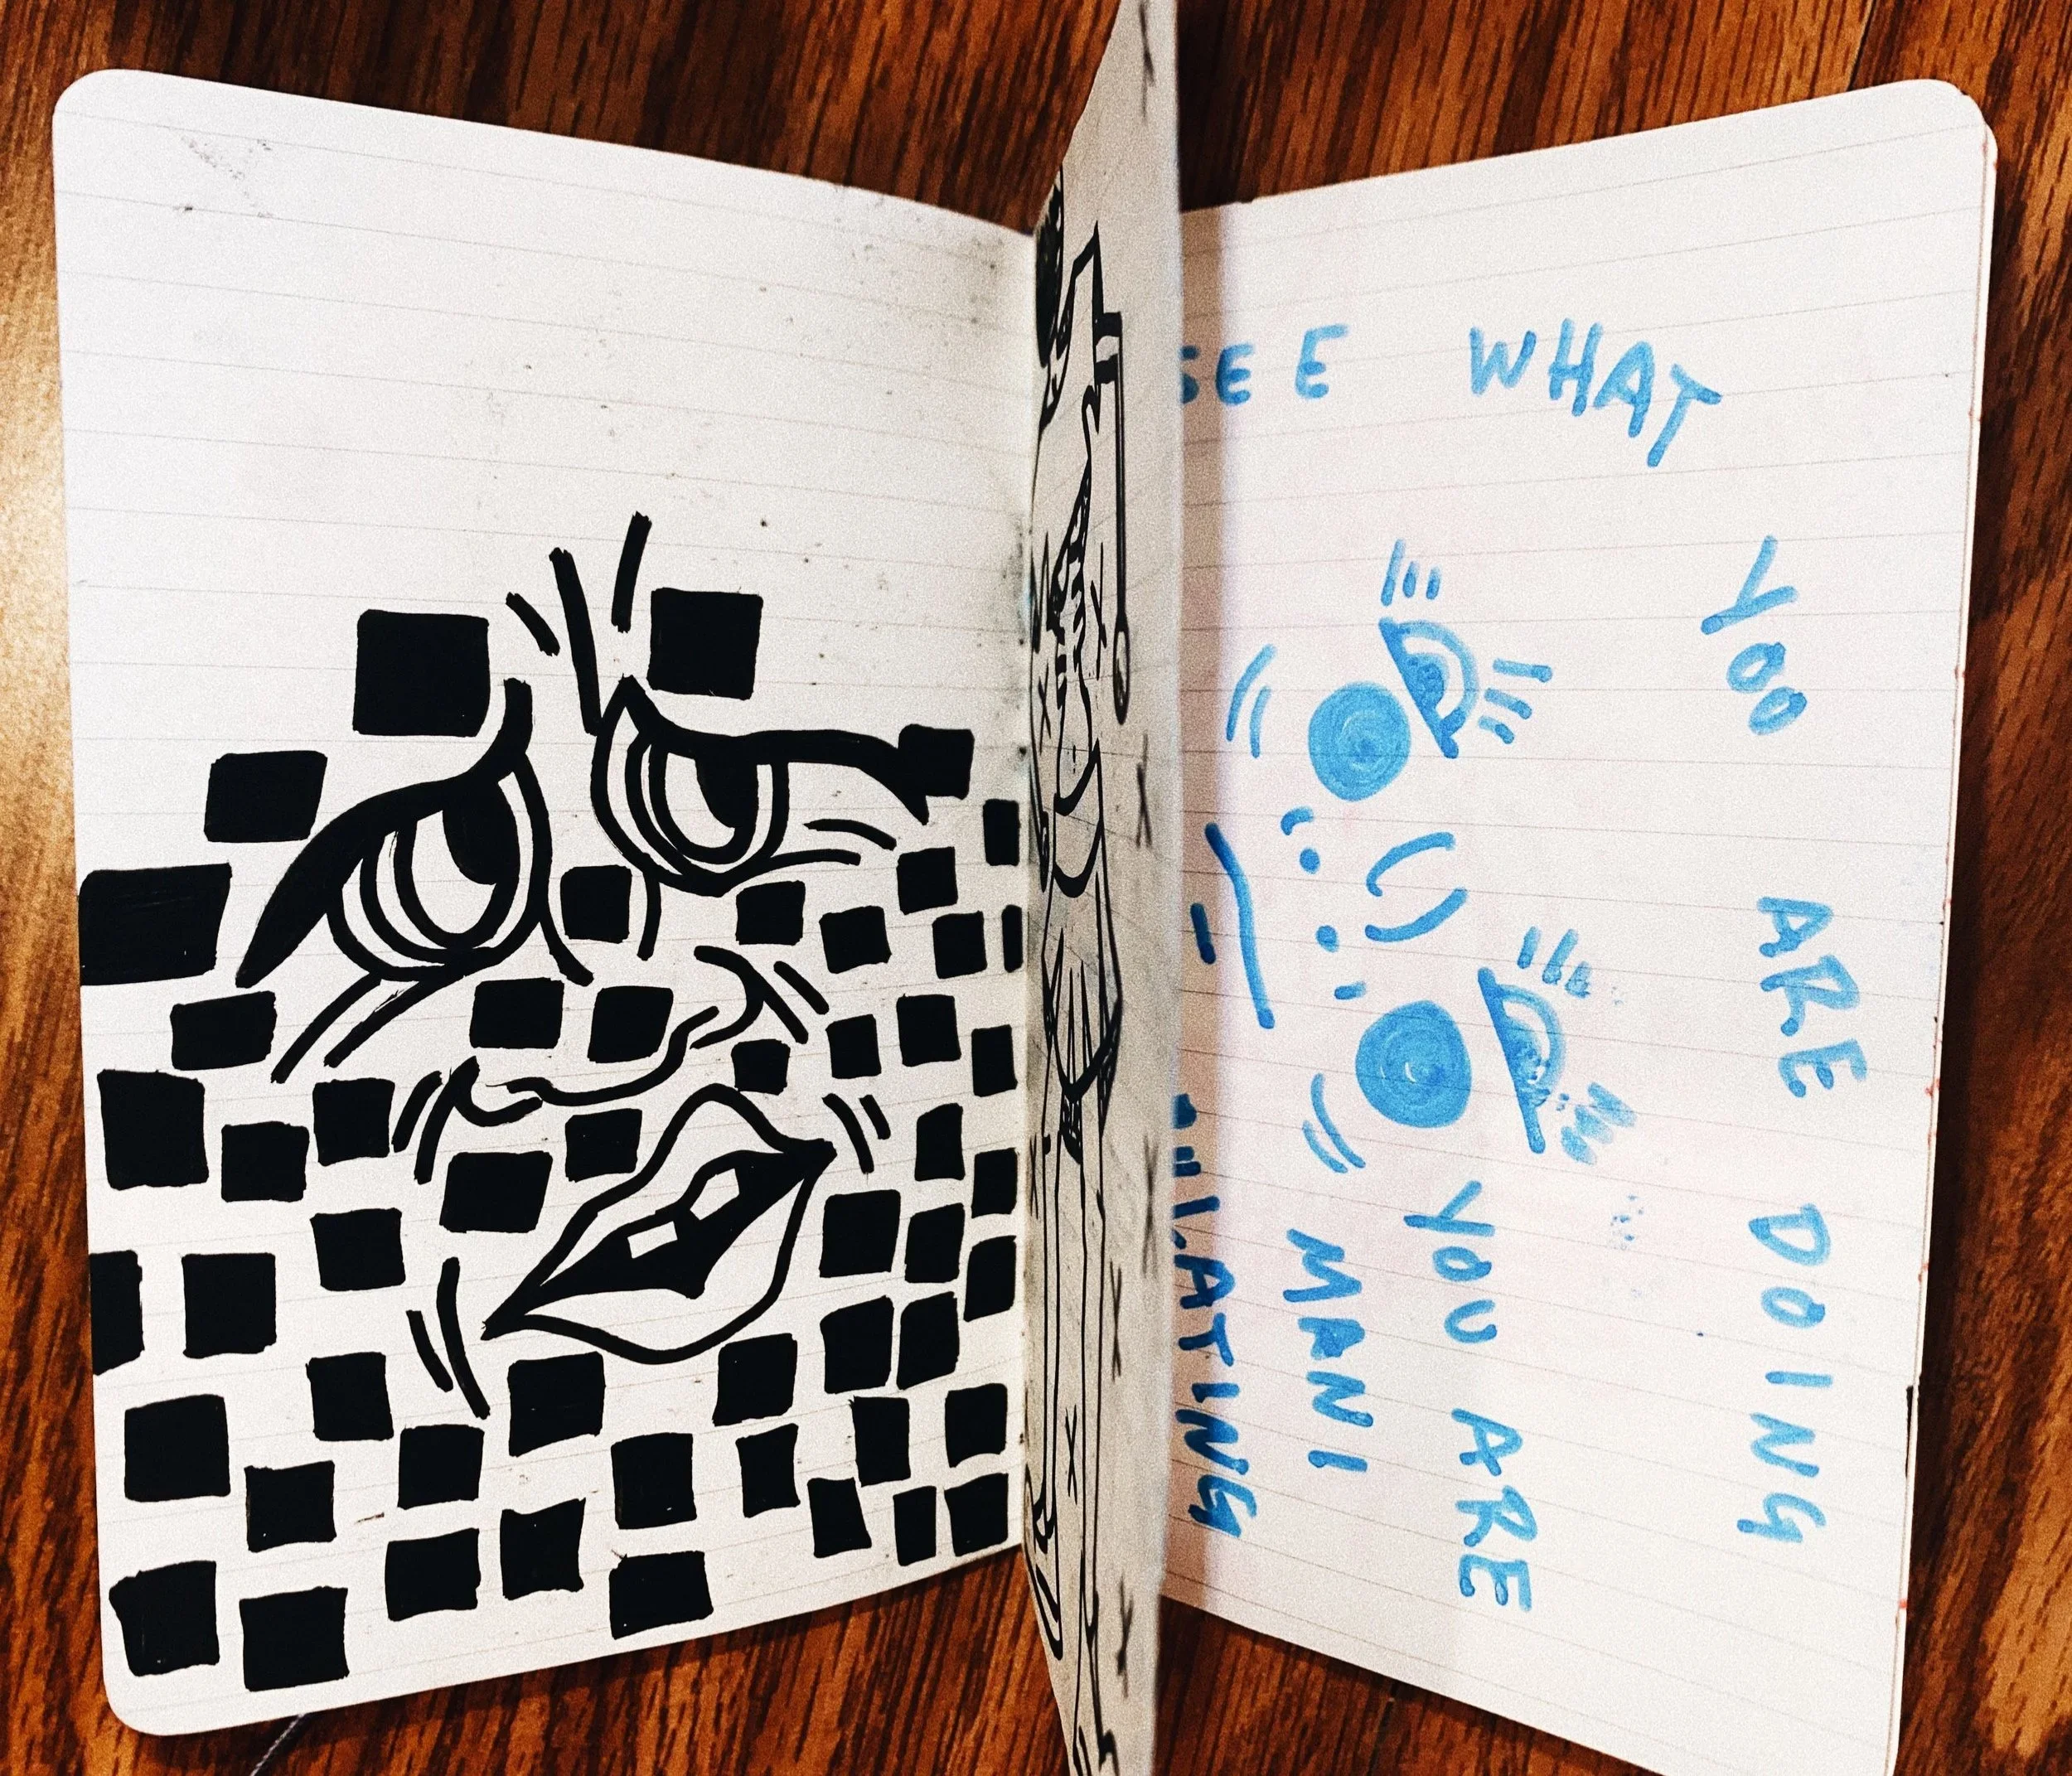 SEE WHAT
YOO ARE DOING
YOU ARE
MANI
PULATING